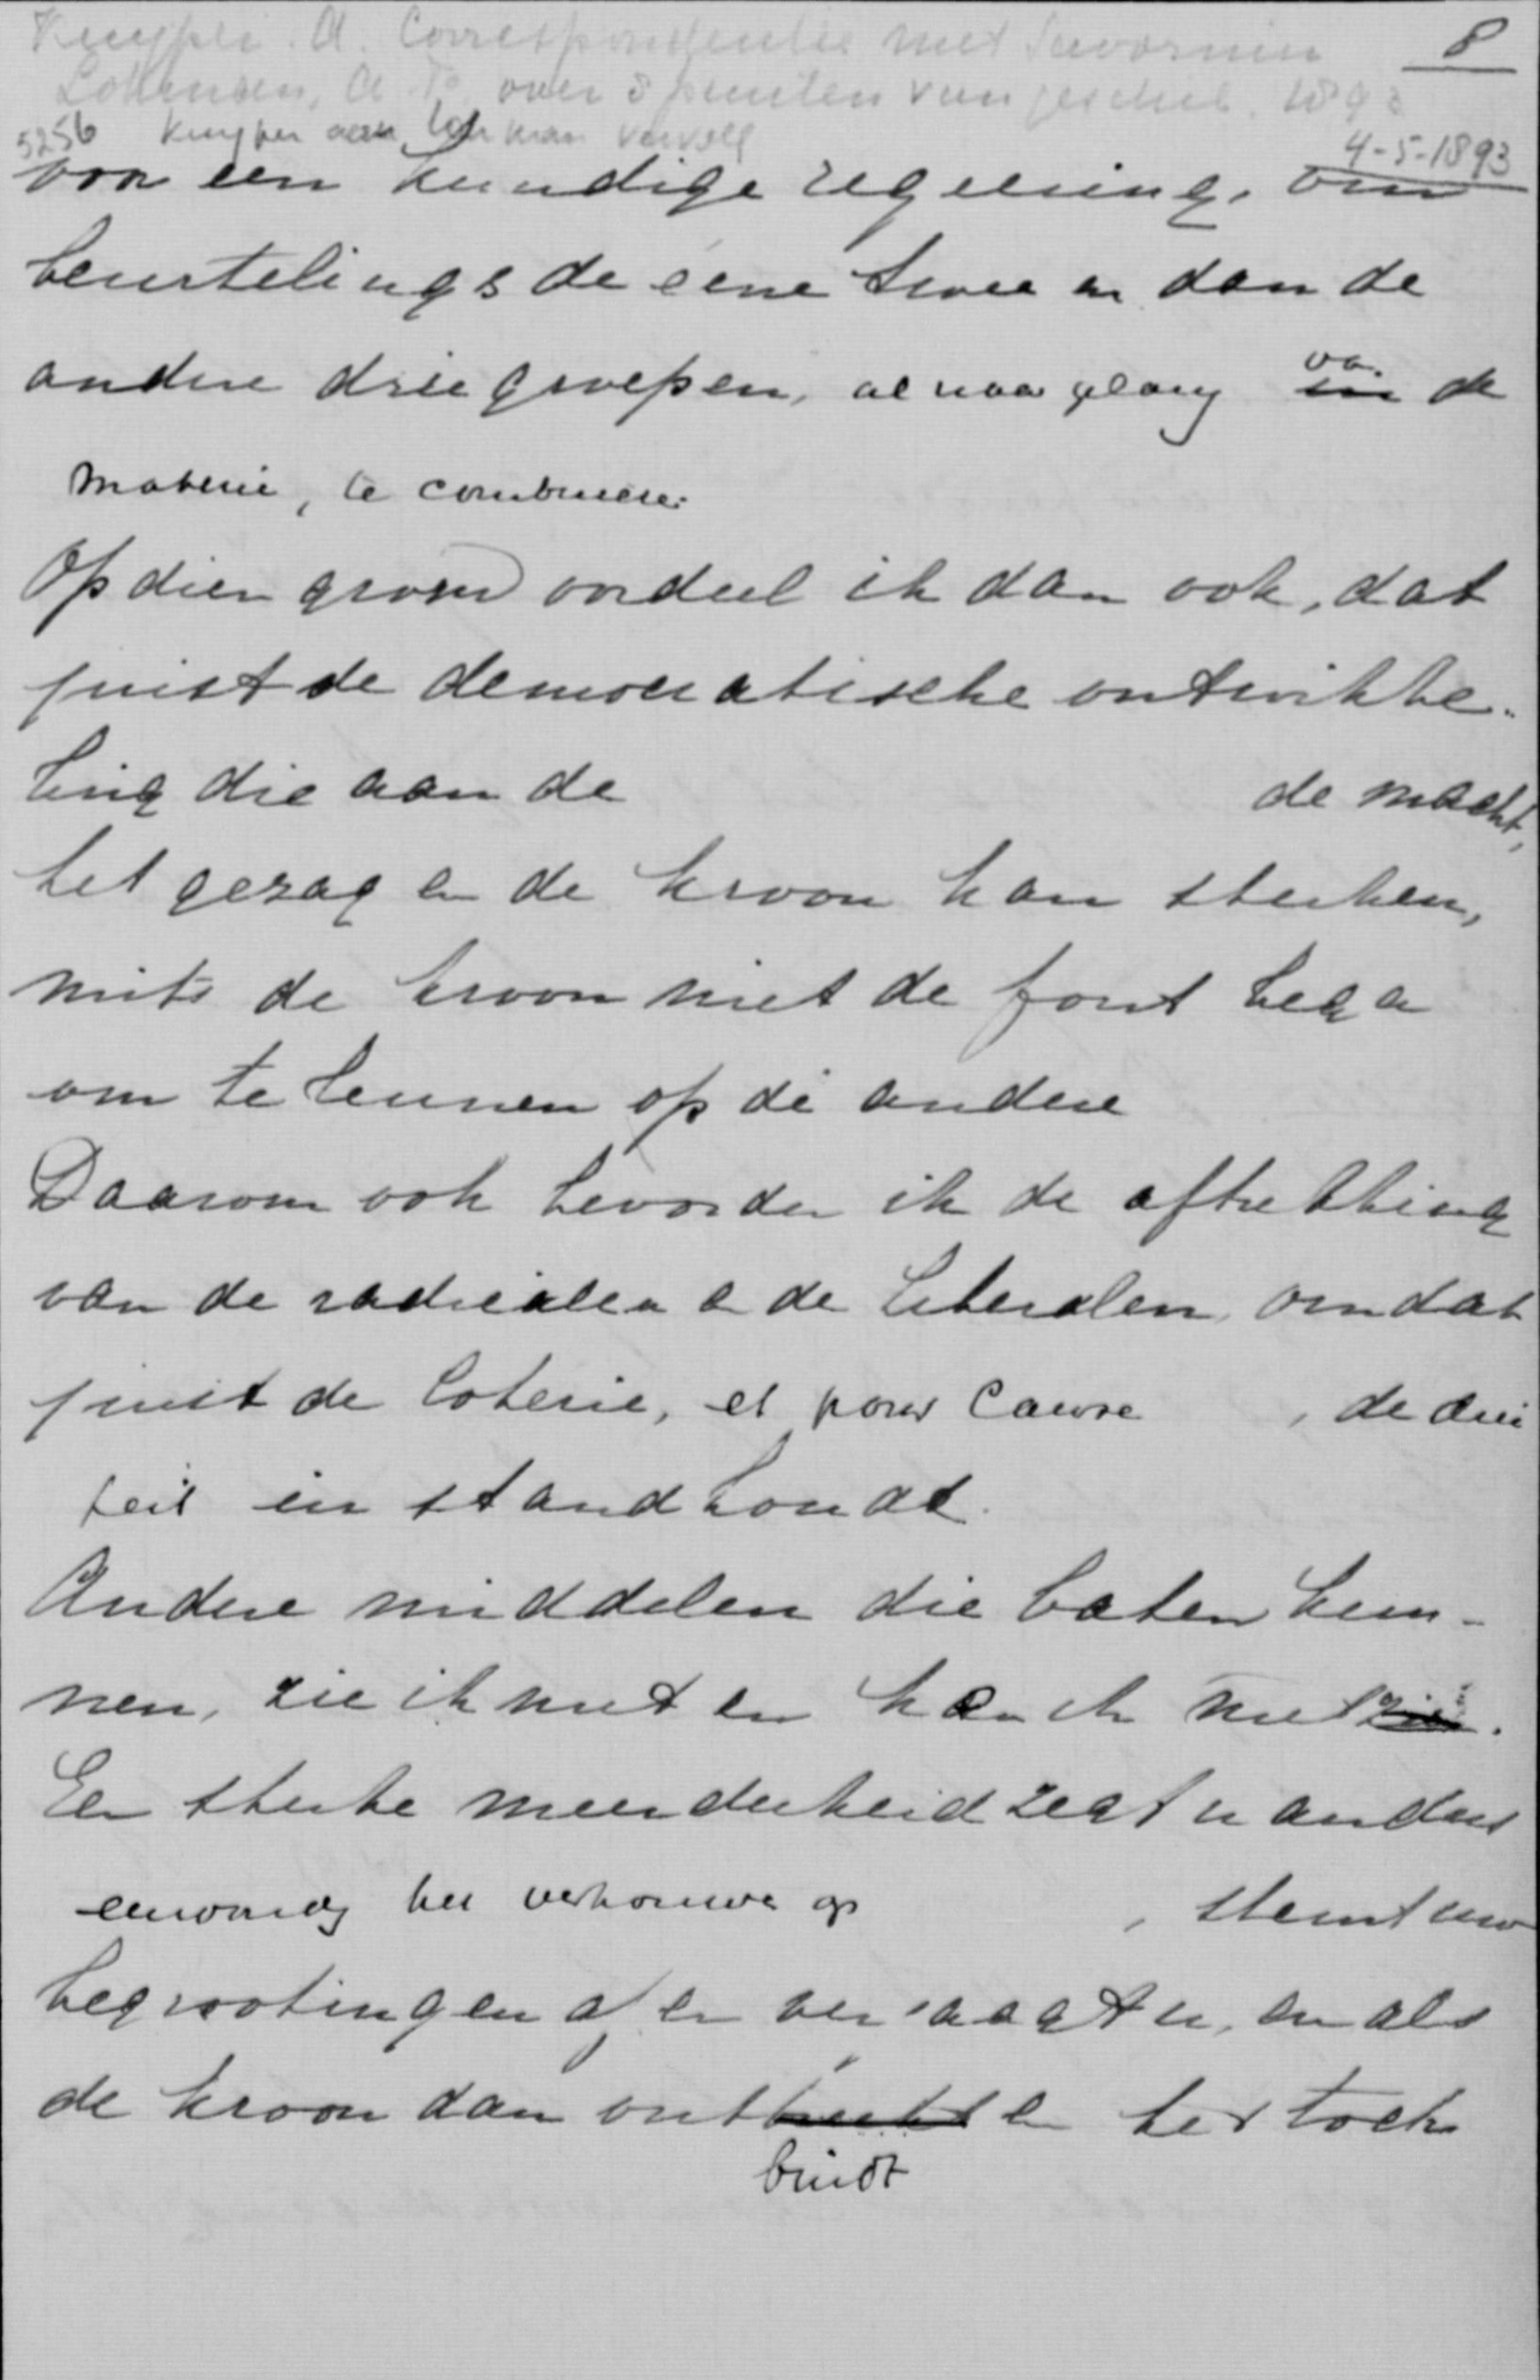 Kuyper. A. Correspondentie met Savornin
8
Lohman, A F. over 8 punten van geschil. 1893
5256 Kuyper aan Lohman vervolg
4-5-1893
voor een kundige regeering, om
beurtelings de eene twee en dan de
andere drie groepen, al naar gelang in van de
materie, te combineeren
Op dien grond oordeel ik dan ook, dat
juist de democratische ontwikke-
ling die aan de de macht,
het gezag en de kroon kan sterken,
mits de kroon niet de fout bega
om te leunen op de andere
Daarom ook bevorder ik de aftrekking
van de radicalen en de liberalen, omdat
juist de coterie, et pour cause , de drie
in stand houdt.
Andere middelen die baten kun-
nen, zie ik niet en kan ik niet zien.
Een sterke meerderheid zegt u anders
eenvoudig het vertrouwen op , stemt uw
begrootingen af en verjaagt u, en als
de kroon dan ont en het toch
bindt